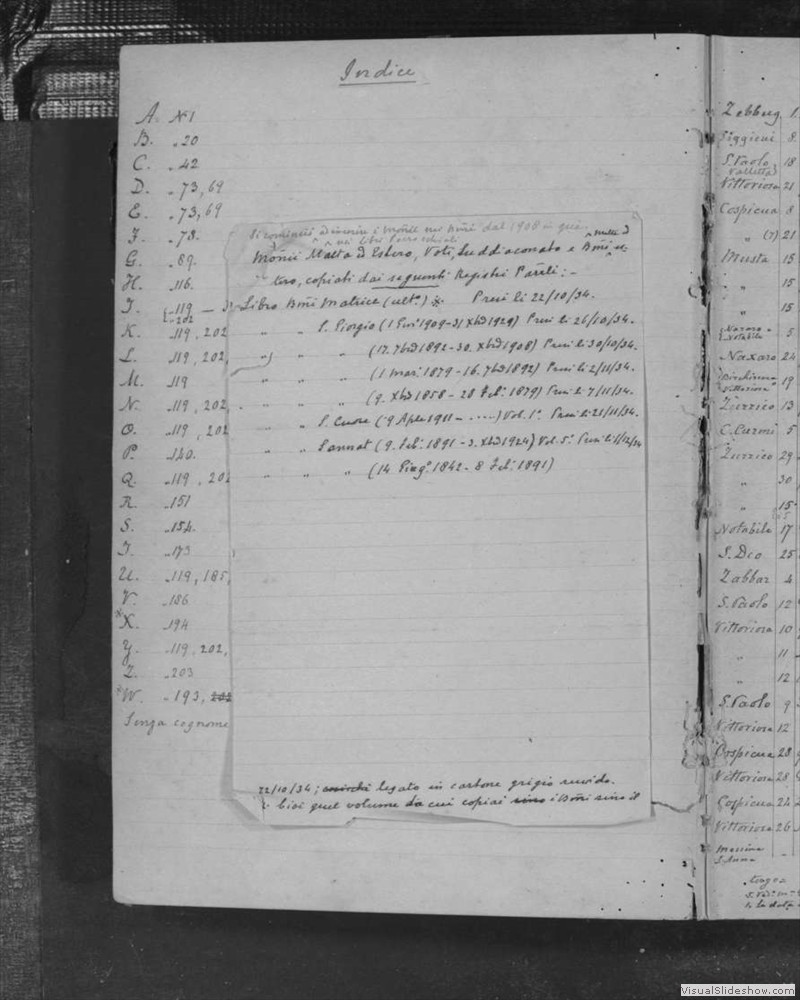 Indice
A. N° 1
B. „ 20
C. „ 42
D. „ 73, 69
E. „ 73, 69
F. „ 78.
G. „ 89.
H. „ 116.
I. „ 119
„ 202
K. „ 119, 202
L. „ 119, 202,
M. „ 119
N. „ 119, 202,
O. „ 119, 202
P. „ 120.
Q. „ 119, 202
R. „ 151
S. „ 154.
T. „ 173
U. „ 119, 185,
V. „ 186
X. „ 194
Y. „ 119, 202,
Z. „ 203
W. „ 193, 202
Senza cognome
dal 1908
Malta d Estero, Voti, Suddiaconato e Bmi
copiati dai seguenti Registri Parrli: -
Libro Bmi Matrice (ult°.) Presi li 22/10/34.
„ „ S. Giorgio (1 Gen° 1909-31 Xbre 1929) Presi li 26/10/34.
„ „ „ (17. 7bre 1892 - 30. Xbre 1908) Presi li 30/10/34.
„ „ „ (1 Mar. 1879 - 16. 7bre 1892) Presi li 2/11/34.
„ „ „ (9. Xbre 1858 - 28 Feb. 1879) Presi li 7/11/34.
„ „ S. Cuore (9 Aple 1911 - .....) Vol. 1°. Presi li 21/11/34.
„ „ Sannat (9. Feb. 1891 - 3. Xbre 1924) Vol. 5°.
„ „ „ (14 Giug° 1842 - 8 Feb. 1891)
22/10/34; legato in cartone grigio ruvido.
è cioè quel volume da cui copiai i Bmi sino il
Zebbug 1.
Siggieui 8.
S. Paolo 18
Valletta
Vittoriosa 21
Cospicua 8
„ (7) 21
Musta 15
„ 15
„ 15
Naxaro 5
Notabile
Naxaro 24
Birchircara 19
Vittoriosa
Zurrico 13
C. Curmi 5
Zurrico 29
„ 30
„ 15
Notabile 17
S. Dco 25
Zabbar 4
S. Paolo 12
Vittoriosa 10
„ 11
„ 12
S. Paolo 9
Vittoriosa 12
Cospicua 28
Vittoriosa 28
Cospicua 24
Vittoriosa 26
Messina
S. Anna
VisualSlideshow.com